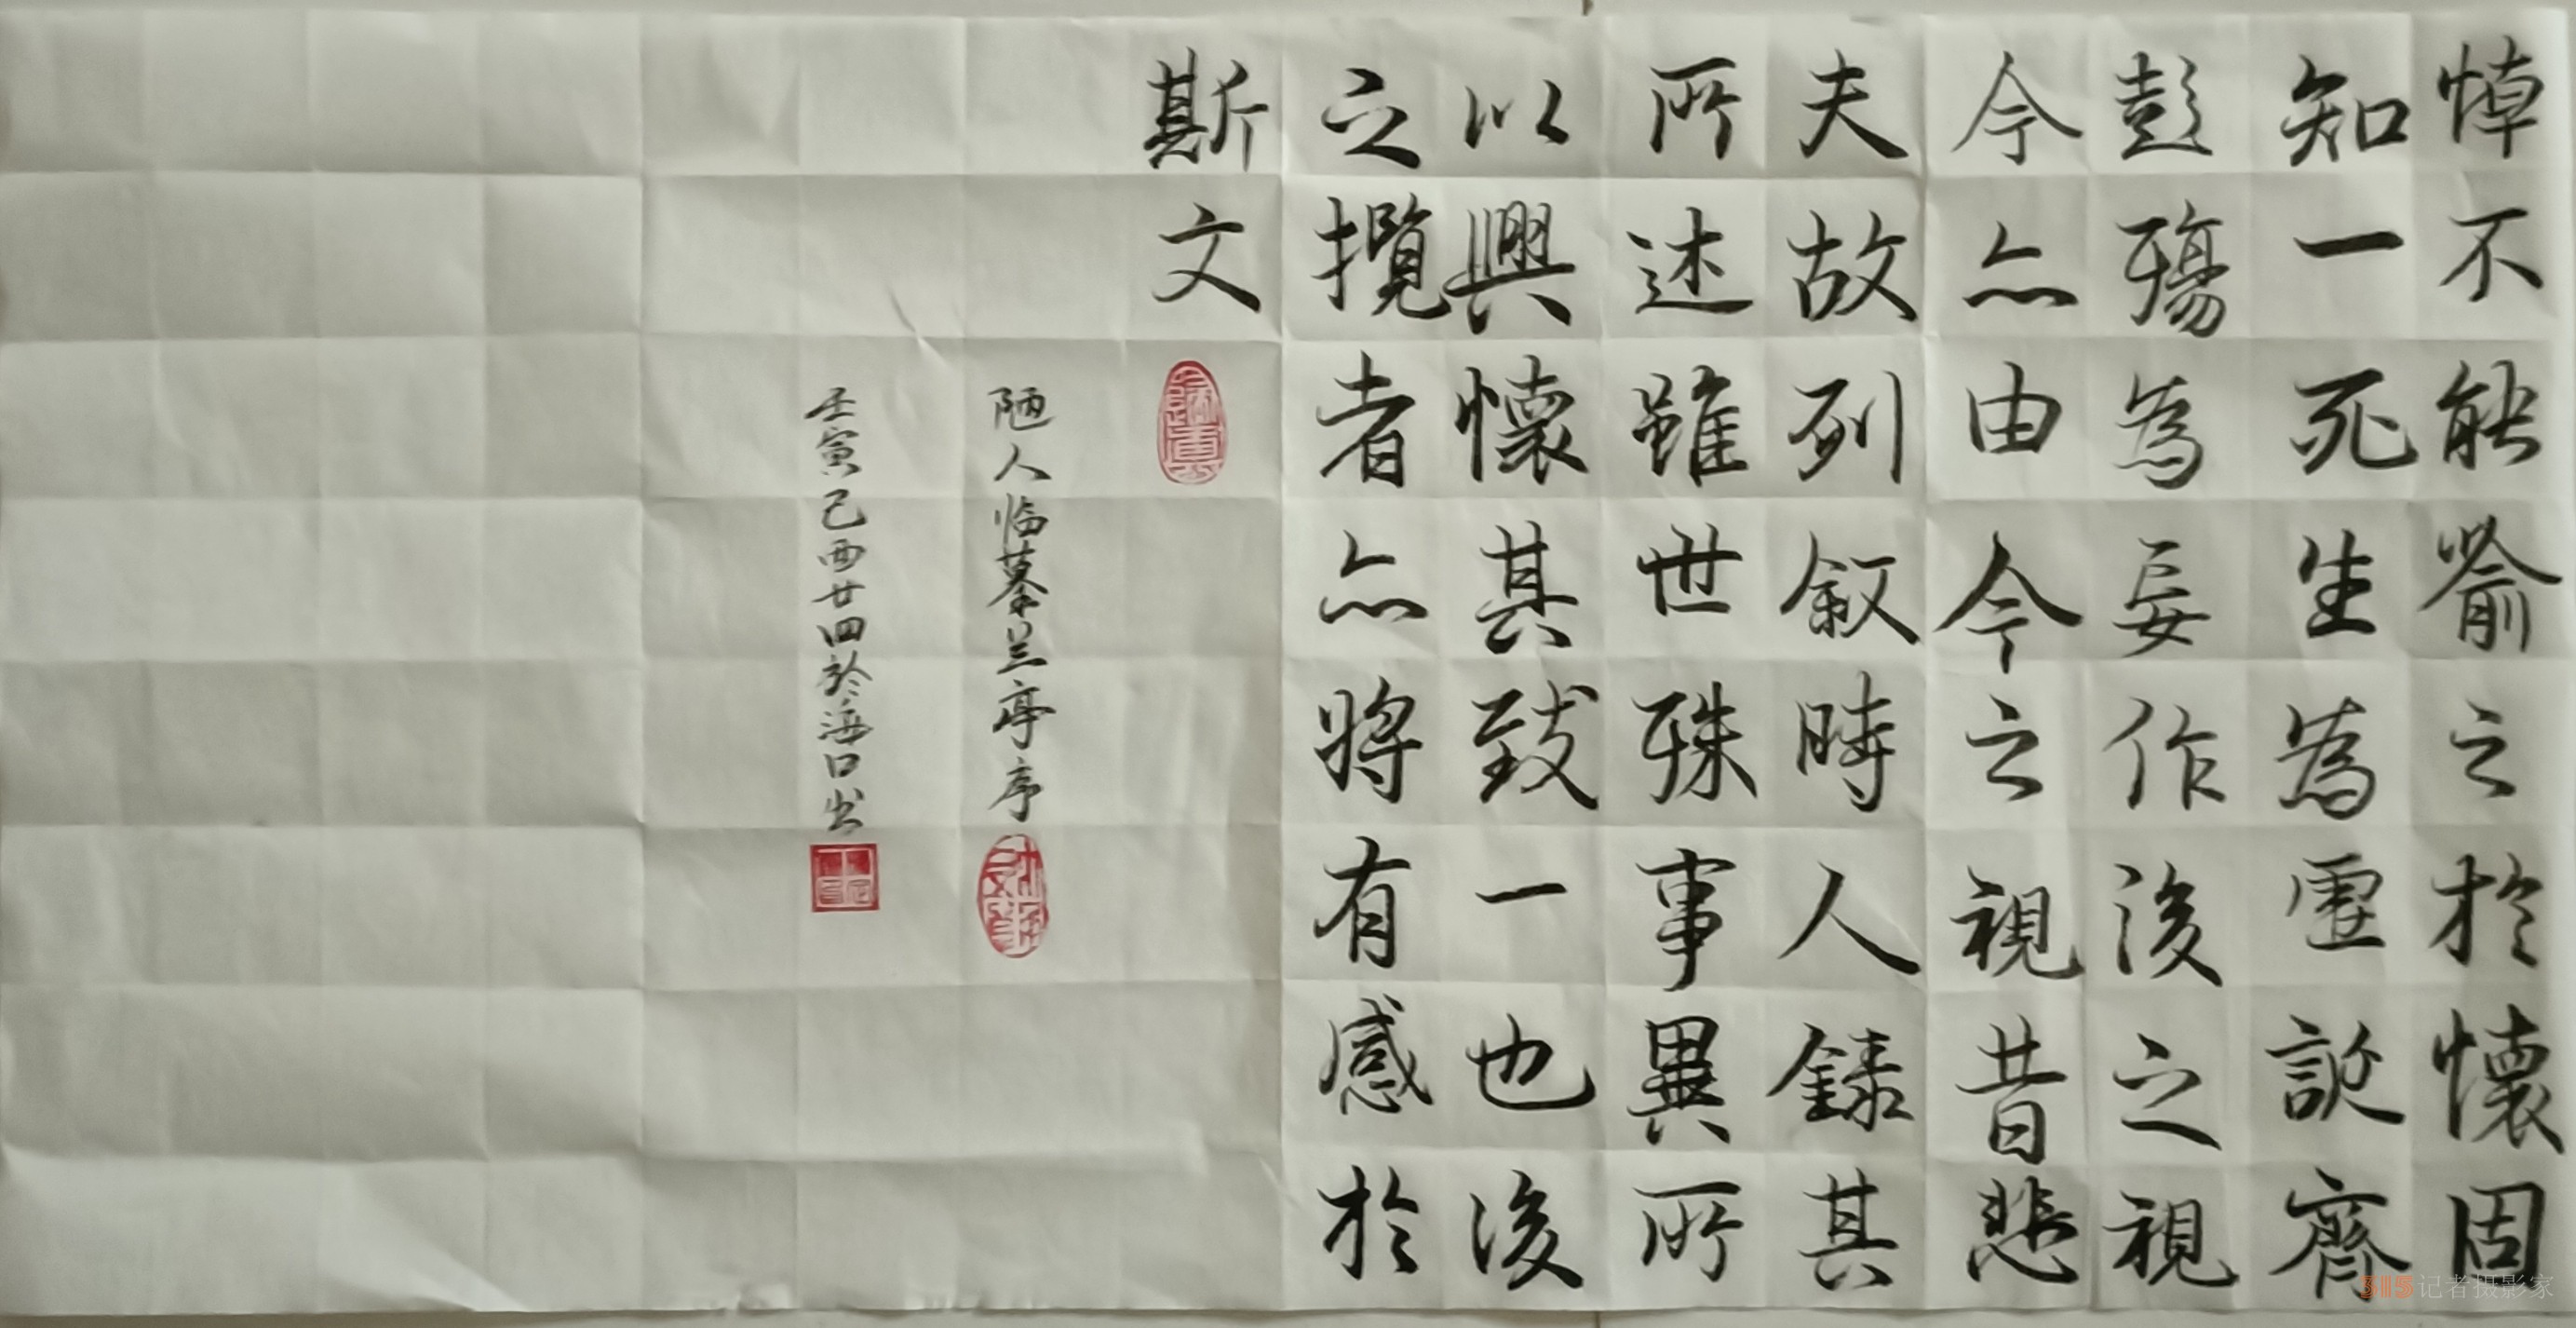 悼不能喻之於懷固
知一死生為虛誕齊
彭殤為妄作後之視
今亦由今之視昔悲
夫故列叙時人錄其
所述雖世殊事異所
以興懷其致一也後
之攬者亦將有感於
斯文
陋人临摹兰亭序
壬寅己酉廿四於海口出
315记者摄影家